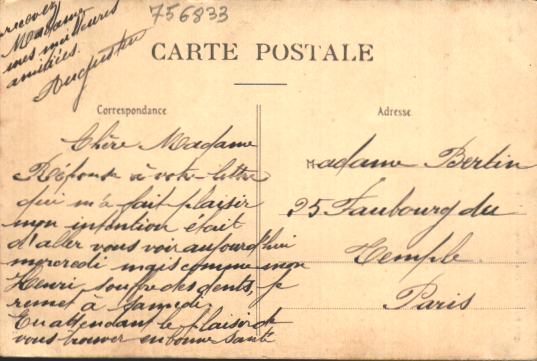 recevez
Madame
mes meilleures
amitiés.
Augustin
756833
CARTE POSTALE
Correspondance
Chère Madame
Réponse à votre lettre
qui m'a fait plaisir
mon intention était
d'aller vous voir aujourd'hui
mercredi mais comme mon
Henri, soufre des dents, je
remet à samedi
En attendant le plaisir de
vous trouver en bonne santé
Adresse
Madame Bertin
25 Faubourg du
Temple.
Paris